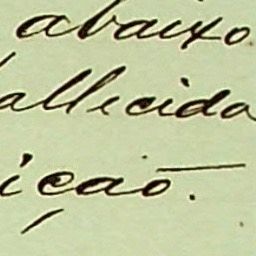 abaixo
allecida
ição.